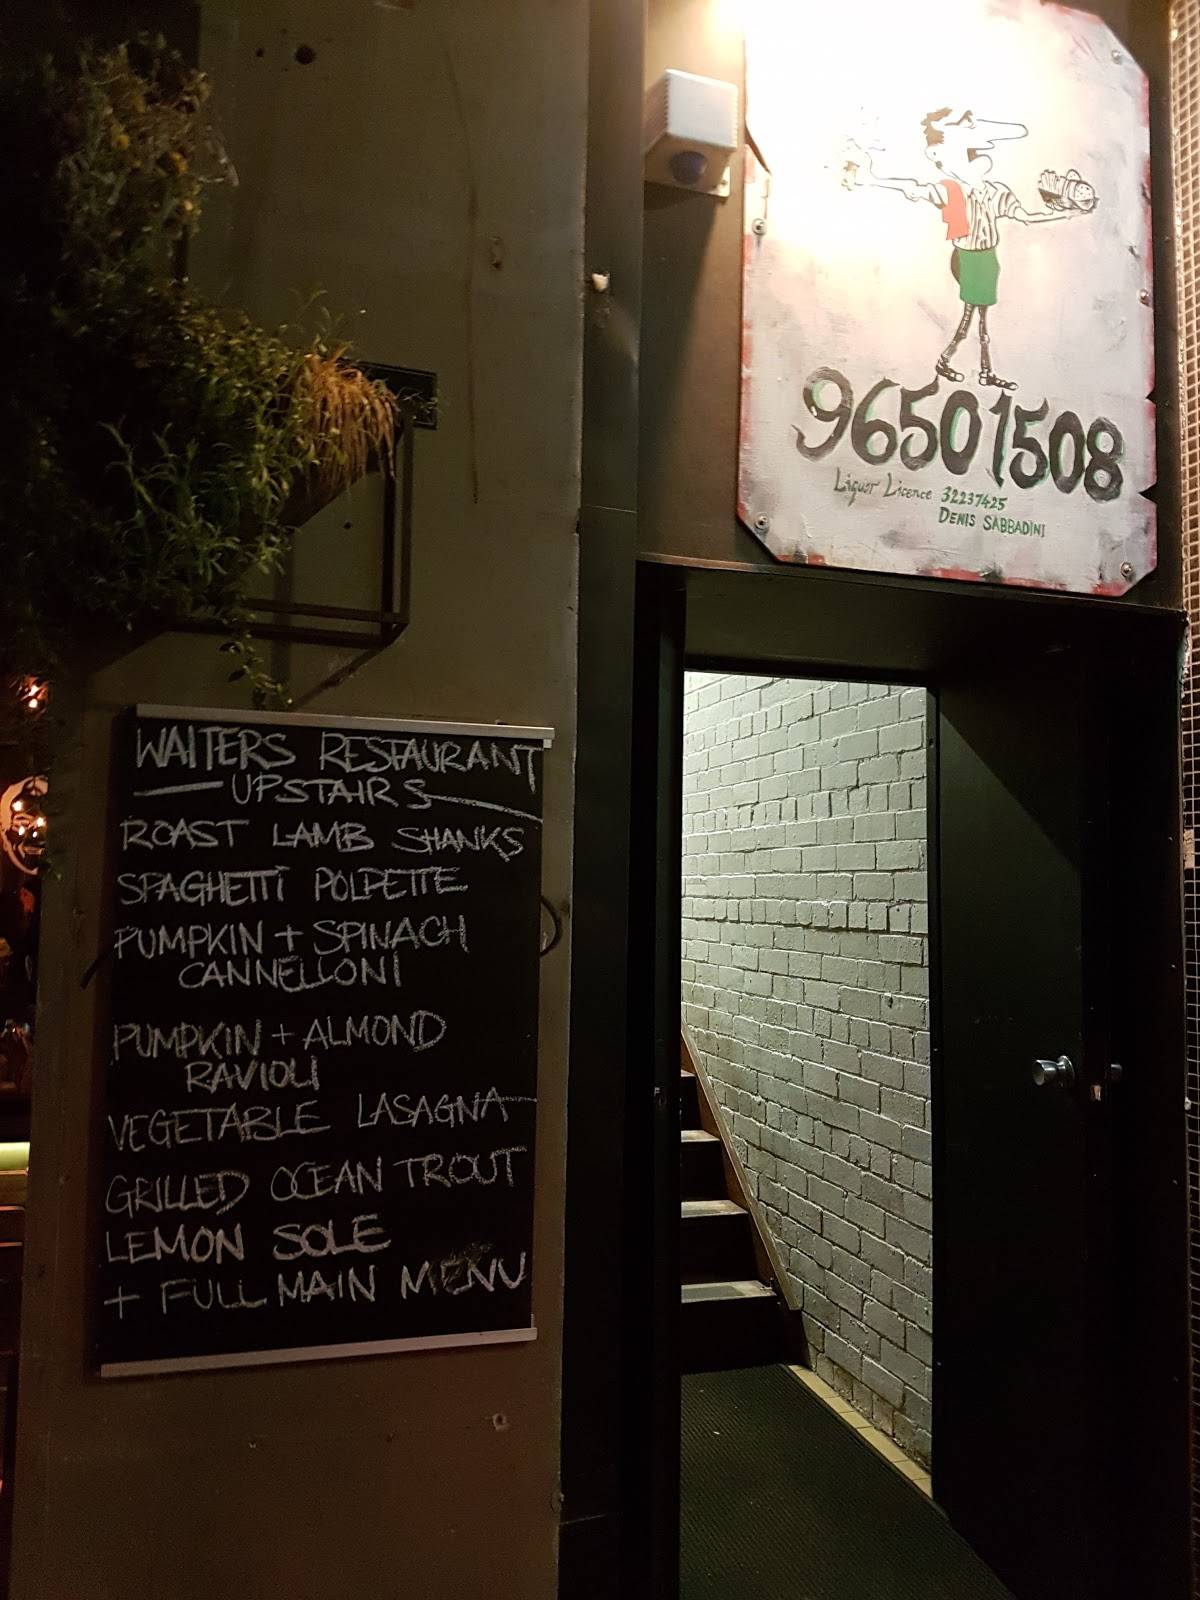 96501508
Liquor Licence 32237425
DENIS SABBADINI
WAITERS RESTAURANT
UPSTAIRS
ROAST LAMB SHANKS
SPAGHETTI POLPETTE
PUMPKIN + SPINACH
CANNELLONI
PUMPKIN + ALMOND
RAVIOLI
VEGETABLE LASAGNA
GRILLED OCEAN TROUT
LEMON SOLE
+ FULL MAIN MENU